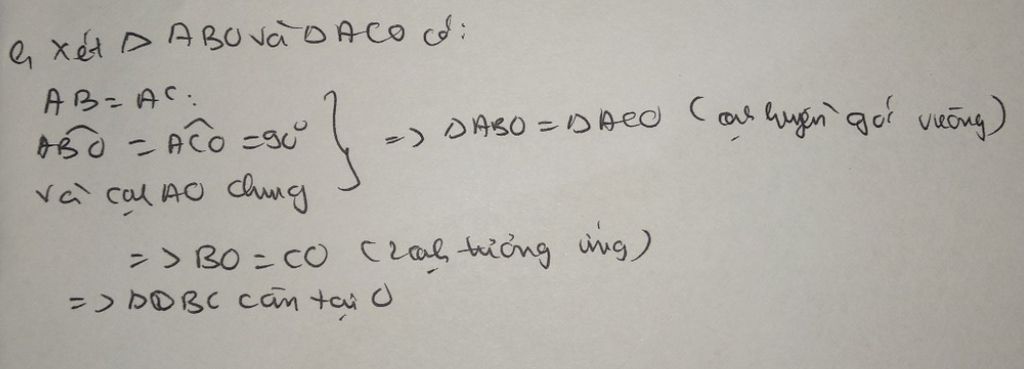 a, Xét Δ ABO và Δ ACO có:
AB = AC:
ABO = ACO = 90°
và cạh AO chung
=> Δ ABO = Δ ACO (cạh huyền góc vuông)
=> BO = CO (2 cạh tương ứng)
=> Δ OBC cân tại O